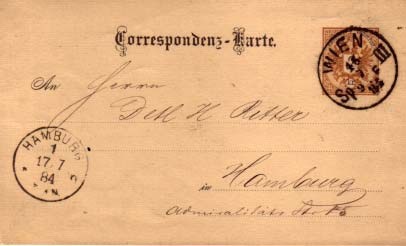 Correspondenz-Karte.
WIEN III
An Herrn
Detl H Ritter
HAMBURG
1
17.7
84
in Hamburg
Admiralitäts Str.